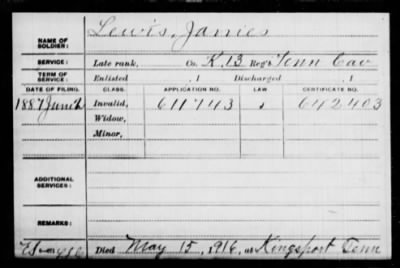 NAME OF SOLDIER: Lewis, James
SERVICE: Late rank, Co. K, 13 Reg't Tenn Cav
TERM OF SERVICE: Enlisted , 1 Discharged , 1
DATE OF FILING. CLASS. APPLICATION NO. LAW CERTIFICATE NO.
1887 June Invalid, 611743 642403
Widow,
Minor,
ADDITIONAL SERVICES:
REMARKS:
Died May 15, 1916, at Kingsport Tenn